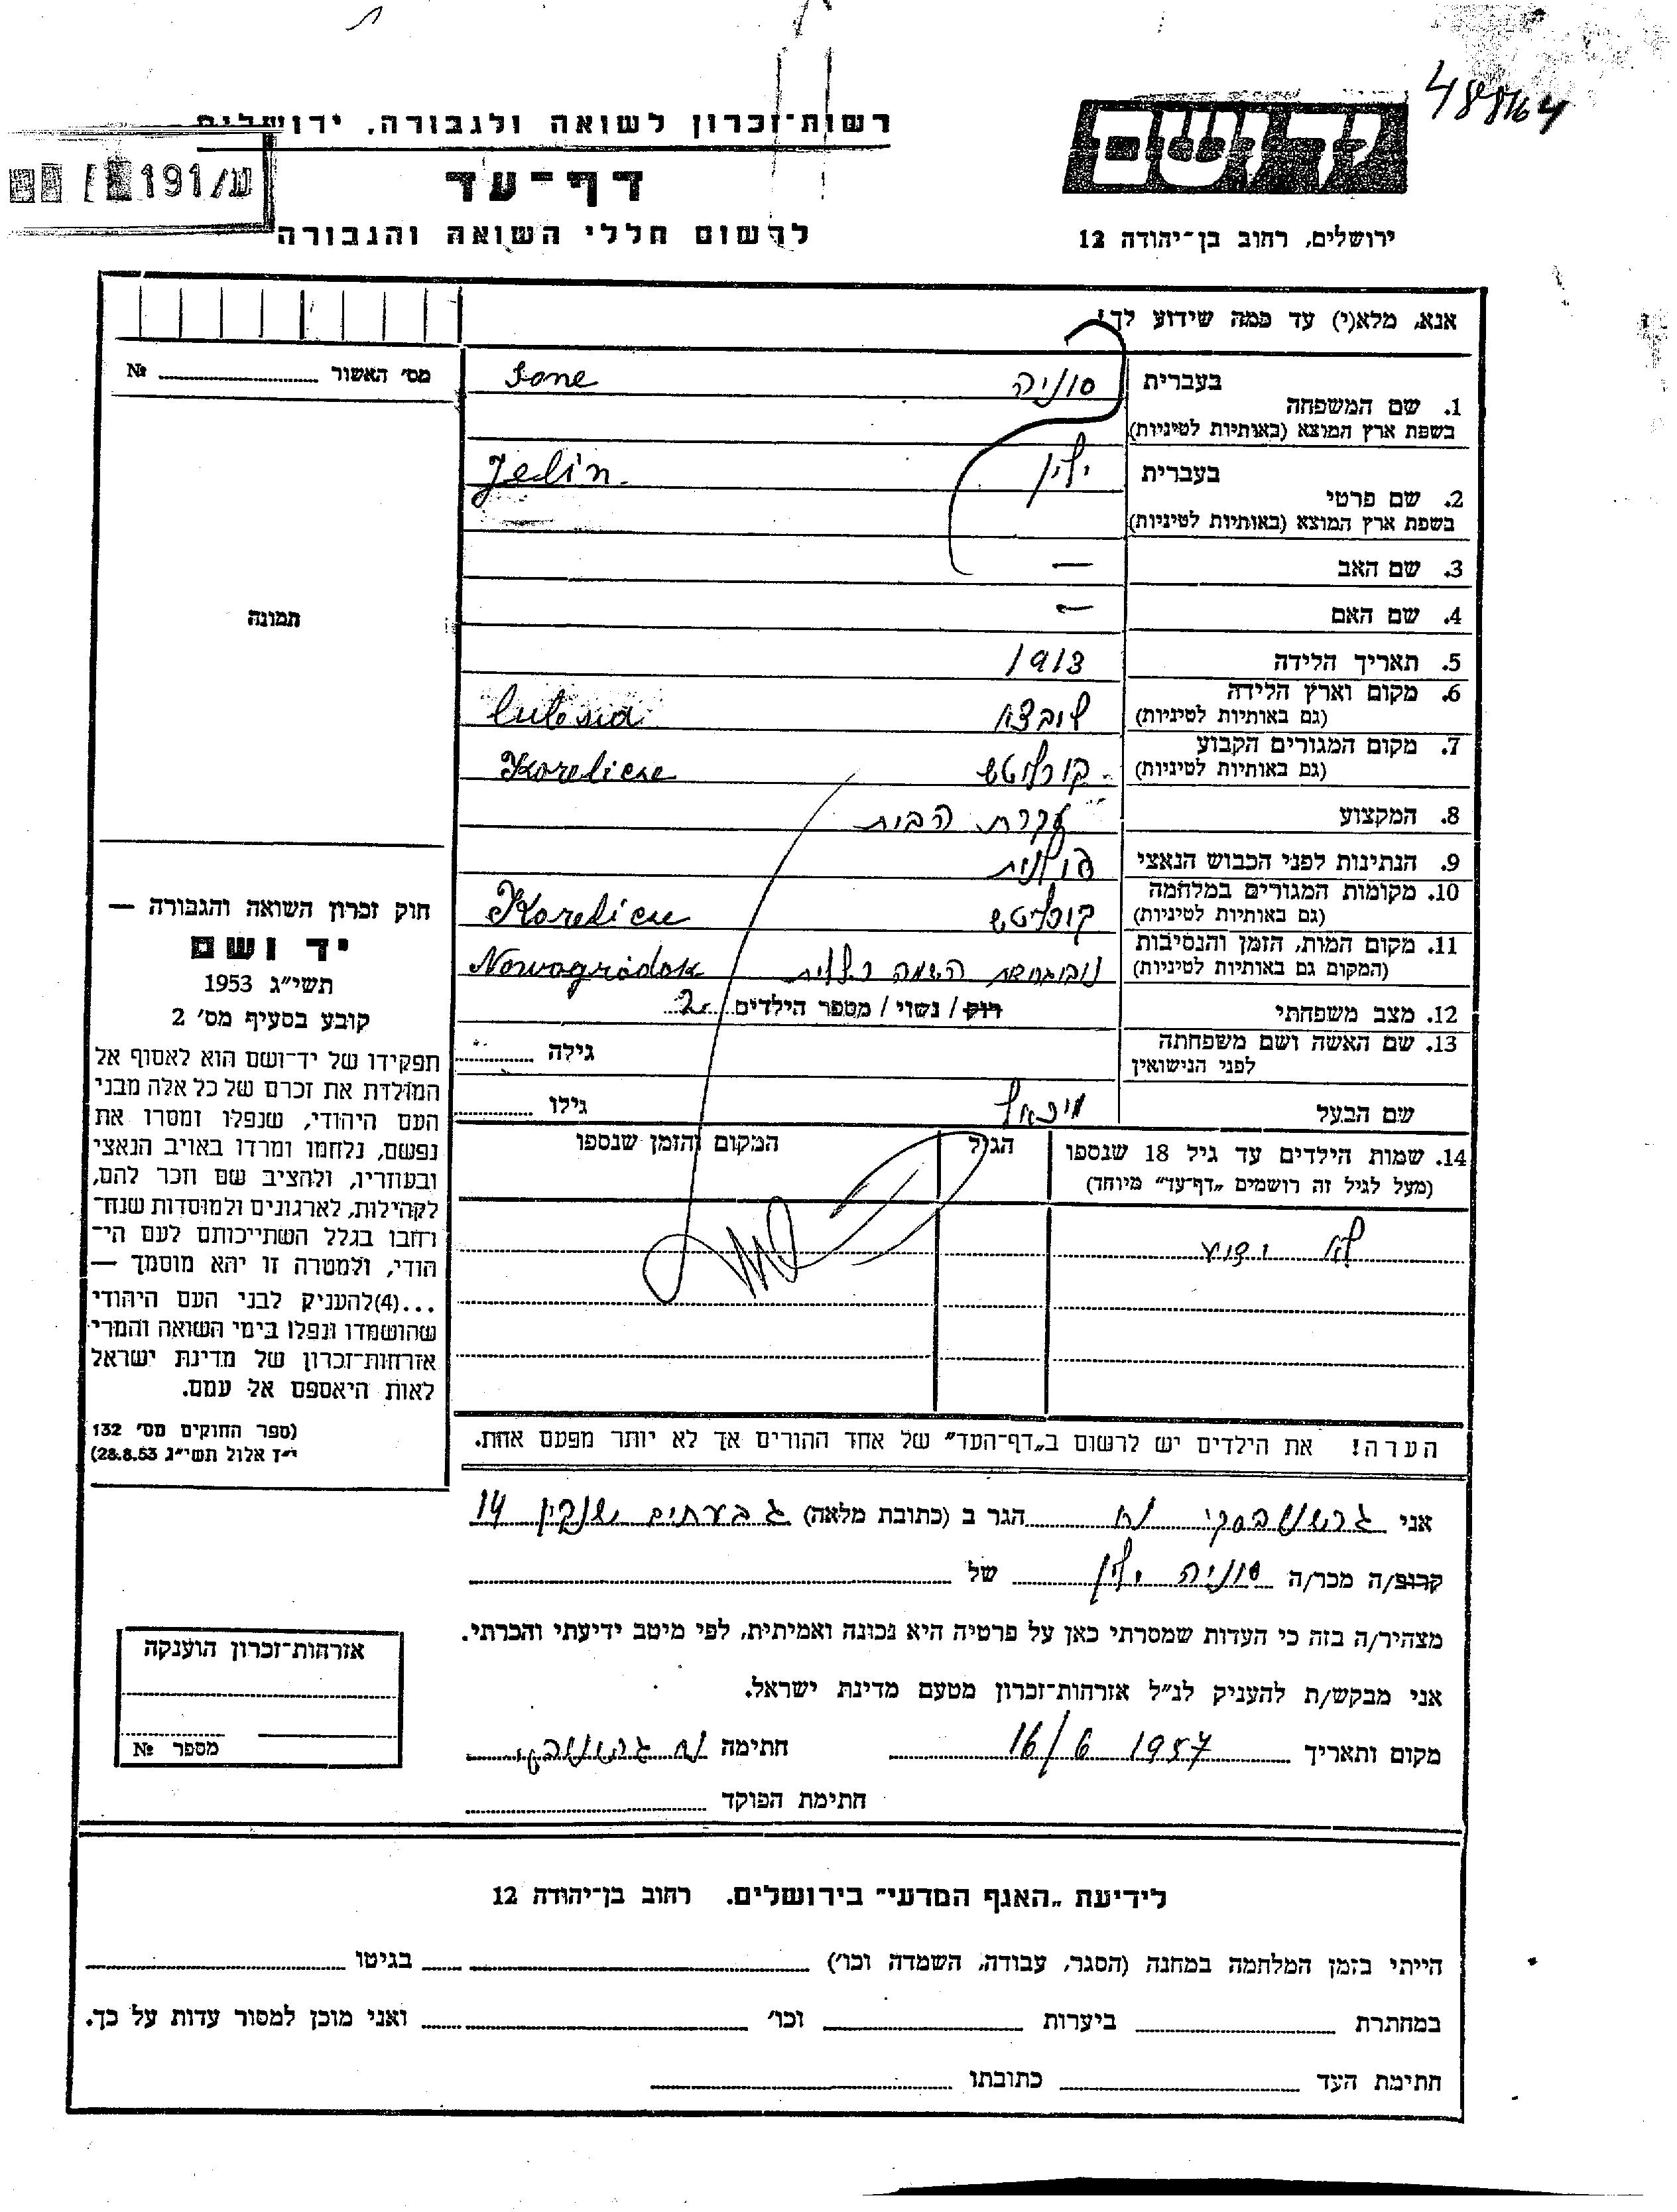 רשות־זכרון לשואה ולגבורה, ירושלים
דף־עד
לרשום חללי השואה והגבורה
ע/191
ידושם
ירושלים, רחוב בן־יהודה 12
אנא, מלא(י) עד כמה שידוע לך!
מס׳ האשור № 
1. שם המשפחה
בעברית סוניה Sone
בשפת ארץ המוצא (באותיות לטיניות)
2. שם פרטי
בעברית ילין Jelin
בשפת ארץ המוצא (באותיות לטיניות)
3. שם האב —
4. שם האם —
תמונה
5. תאריך הלידה 1913
6. מקום וארץ הלידה
(גם באותיות לטיניות) לובצא
7. מקום המגורים הקבוע
(גם באותיות לטיניות) קורליטש Korelicze
8. המקצוע עקרת הבית
9. הנתינות לפני הכבוש הנאצי פולנית
10. מקומות המגורים במלחמה
(גם באותיות לטיניות) קורליטש
11. מקום המות, הזמן והנסיבות
(המקום גם באותיות לטיניות) השמה כללית Nowogródok
12. מצב משפחתי רווק / נשוי / מספר הילדים 2
13. שם האשה ושם משפחתה
לפני הנישואין גילה
שם הבעל מיכאל גילו
14. שמות הילדים עד גיל 18 שנספו
(מעל לגיל זה רושמים „דף־עד” מיוחד)
הגיל
המקום והזמן שנספו
לא ידוע
הערה! את הילדים יש לרשום ב„דף־העד” של אחד ההורים אך לא יותר מפעם אחת.
חוק זכרון השואה והגבורה —
יד ושם
תשי״ג 1953
קובע בסעיף מס׳ 2
תפקידו של יד־ושם הוא לאסוף אל
המולדת את זכרם של כל אלה מבני
העם היהודי, שנפלו ומסרו את
נפשם, נלחמו ומרדו באויב הנאצי
ובעוזריו, ולהציב שם וזכר להם,
לקהילות, לארגונים ולמוסדות שנח־
רחבו בגלל השתייכותם לעם הי־
הודי, ולמטרה זו יהא מוסמך —
...(4) להעניק לבני העם היהודי
שהושמדו ונפלו בימי השואה והמרי
אזרחות־זכרון של מדינת ישראל
לאות היאספם אל עמם.
(ספר החוקים מס׳ 132
י״ז אלול תשי״ג 28.8.53)
אני הגר ב (כתובת מלאה) גבעתים שנקין 14
קרוב/ה מכר/ה סוניה ילין של
מצהיר/ה בזה כי העדות שמסרתי כאן על פרטיה היא נכונה ואמיתית, לפי מיטב ידיעתי והכרתי.
אני מבקש/ת להעניק לנ״ל אזרחות־זכרון מטעם מדינת ישראל.
מקום ותאריך 16/6 1957 חתימה
חתימת הפוקד
אזרחות־זכרון הוענקה
מספר №
לידיעת „האגף המדעי” בירושלים. רחוב בן־יהודה 12
הייתי בזמן המלחמה במחנה (הסגר, עבודה, השמדה וכו׳) בגיטו
במחתרת ביערות וכו׳ ואני מוכן למסור עדות על כך.
חתימת העד כתובתו